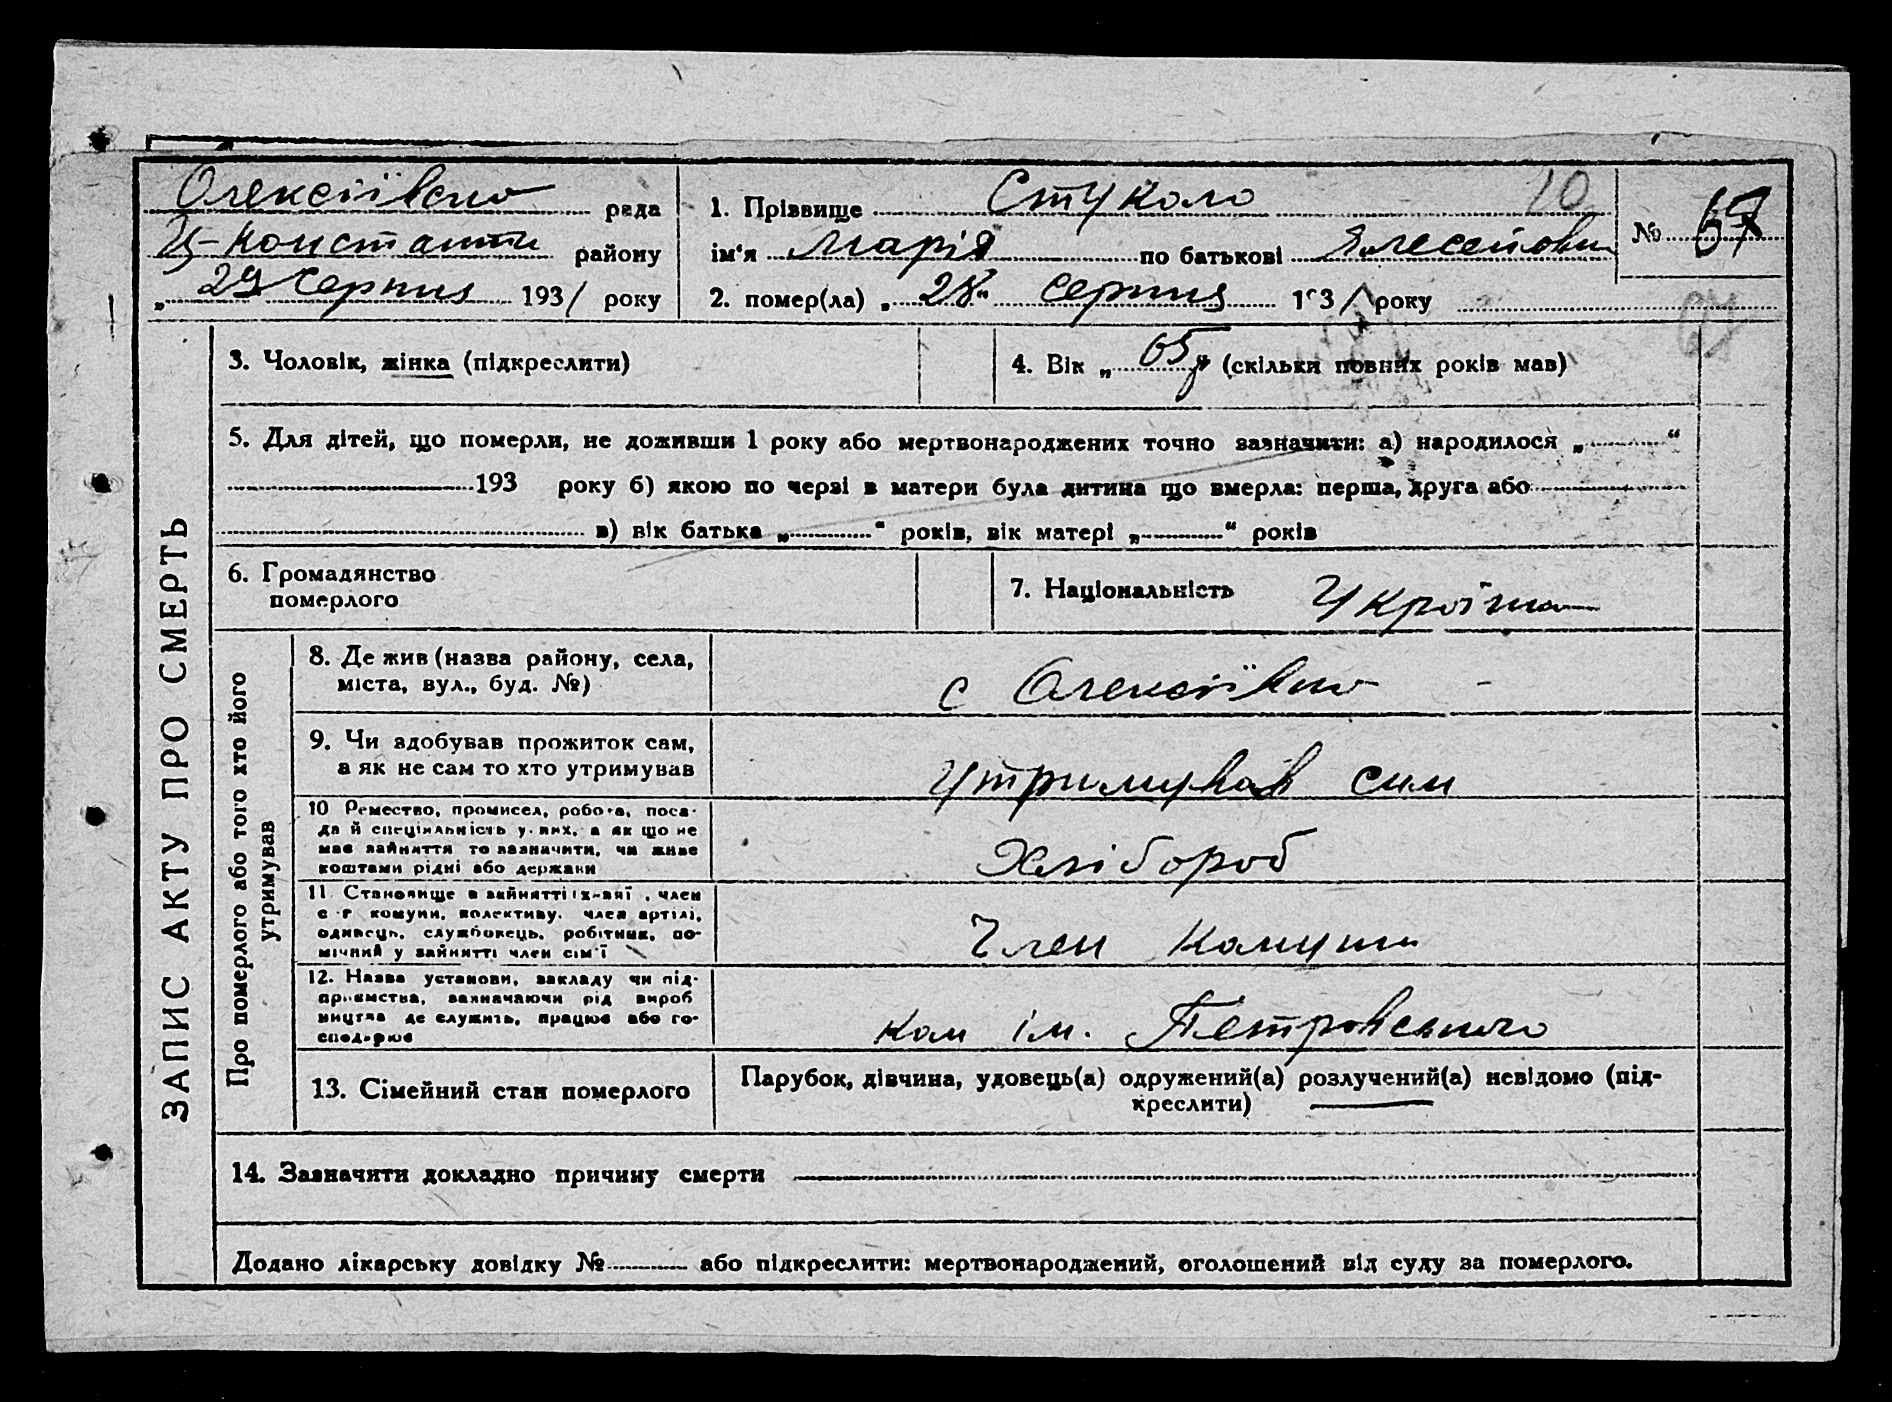 Олексіївсько рада
Ц-Констант району
„ 29 " Серпня 1931 року
1. Прізвище Стукало 10
ім'я Марія по батькові
2. помер(ла) „ 28 " серпня 1931 року
№ 67
67
ЗАПИС АКТУ ПРО СМЕРТЬ
3. Чоловік, жінка (підкреслити)
4. Вік „ 65 р " (скільки повних років мав)
5. Для дітей, що померли, не доживши 1 року або мертвонароджених точно зазначити: а) народилося „ "
193 року б) якою по черзі в матери була дитина що вмерла: перша, друга або
в) вік батька „ " років, вік матері „ " років
6. Громадянство
померлого
7. Національність Україн
Про померлого або того хто його
утримував
8. Де жив (назва району, села,
міста, вул., буд. №)
с Олексіївко
9. Чи здобував прожиток сам,
а як не сам то хто утримував
утримував син
10 Ремество, промисел, робота, поса-
да й спеціяльність у них, а як що не
має зайняття то зазначити, чи живе
коштами рідні або держави
Хлібороб
11. Становище в зайнятті , член
с-г комуни, колективу, член артілі,
одинець, службовець, робітник, по-
мічний у зайнятті член сім'ї
Член Комуни
12. Назва установи, закладу чи під-
приємства, зазначаючи рід вироб
ництва де служить, працює або го-
сподарює
Ком ім. Петровського
13. Сімейний стан померлого
Парубок, дівчина, удовець(а) одружений(а) розлучений(а) невідомо (під-
креслити)
14. Зазначити докладно причину смерти
Додано лікарську довідку № або підкреслити: мертвонароджений, оголошений від суду за померлого.